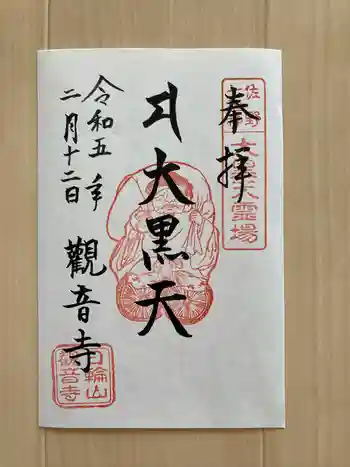 奉拝
佐野 大黒天霊場
大黒天
令和五年
二月十二日
觀音寺
日輪山
観音寺